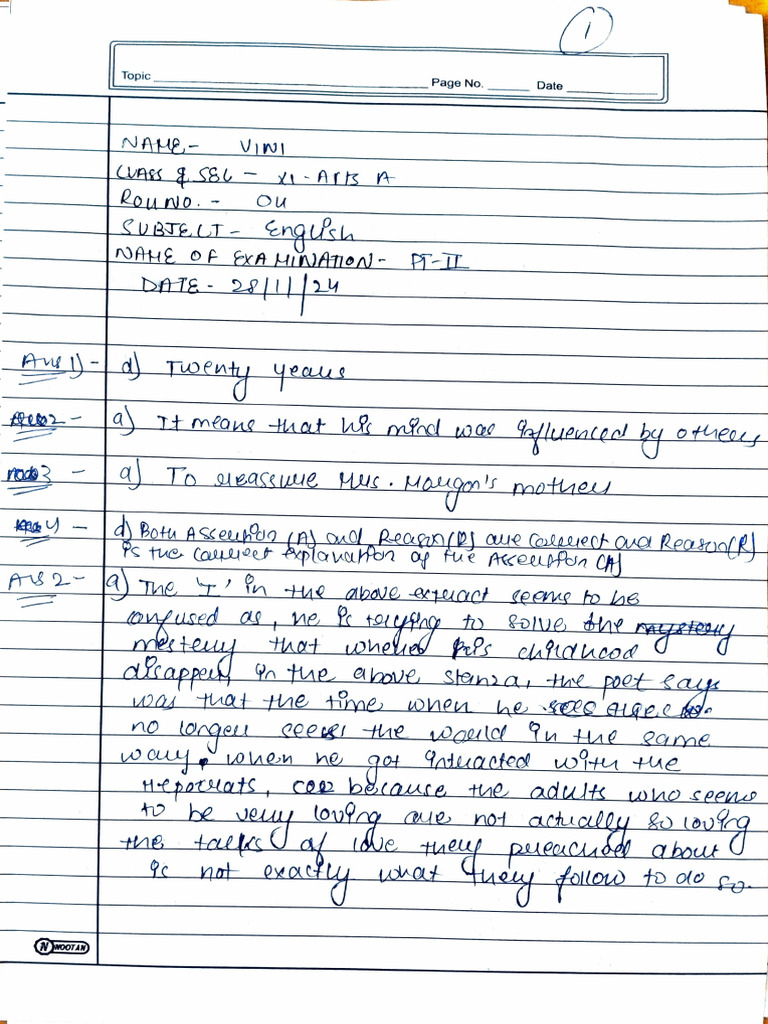 1
Topic Page No. Date
NAME- VINI
CLASS & SEC - XI - Arts A
ROLL NO. - 04
SUBJECT - English
NAME OF EXAMINATION - PT-II
DATE - 28/11/24
Ans 1) - d) Twenty years
2 - a) It means that his mind was influenced by others
3 - a) To reassure Mrs. Morgan's mother
4 - d) Both Assertion (A) and Reason(R) are correct and Reason(R)
is the correct explanation of the Assertion (A)
Ans 2 - a) The 'I' in the above extract seems to be
confused as, he is trying to solve the mystery
mestery that where his childhood
disappear, in the above stanza, the poet says
was that the time when he
no longer sees the world in the same
way, when he got intracted with the
Hepocrats, because the adults who seems
to be very loving are not actually so loving
the talks of love they preached about
is not exactly what they follow to do so.
N NOOTAN